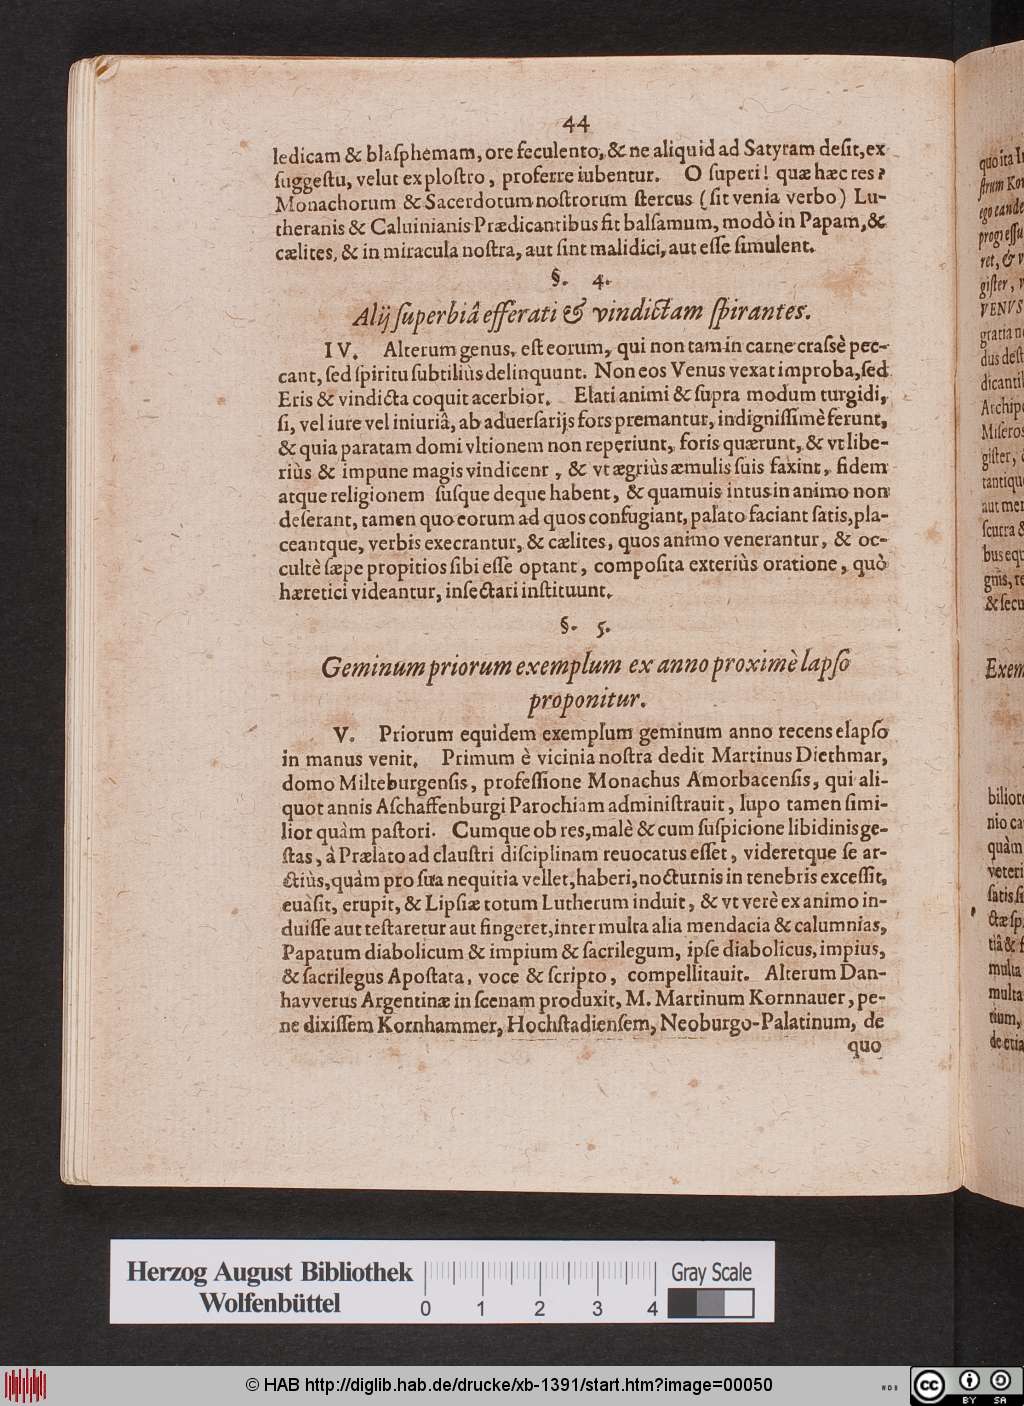 44
ledicam & blaſphemam, ore feculento, & ne aliquid ad Satyram deſit, ex
ſuggeſtu, velut ex ploſtro, proferre iubentur. O ſuperi! quæ hæc res?
Monachorum & Sacerdotum noſtrorum ſtercus (ſit venia verbo) Lu-
theranis & Caluinianis Prædicantibus fit balſamum, modò in Papam, &
cælites, & in miracula noſtra, aut ſint malidici, aut eſſe ſimulent.
§. 4.
Alij ſuperbiâ efferati & vindictam ſpirantes.
IV. Alterum genus, eſt eorum, qui non tam in carne craſsè pec-
cant, ſed ſpiritu ſubtiliùs delinquunt. Non eos Venus vexat improba, ſed
Eris & vindicta coquit acerbior. Elati animi & ſupra modum turgidi,
ſi, vel iure vel iniuriâ, ab aduerſarijs fors premantur, indigniſſimè ferunt,
& quia paratam domi vltionem non reperiunt, foris quærunt, & vt libe-
riùs & impune magis vindicent, & vt ægriùs æmulis ſuis faxint, fidem
atque religionem ſuſque deque habent, & quamuis intus in animo non
deſerant, tamen quo eorum ad quos confugiant, palato faciant ſatis, pla-
ceantque, verbis execrantur, & cælites, quos animo venerantur, & oc-
cultè ſæpe propitios ſibi eſſe optant, compoſita exteriùs oratione, quò
hæretici videantur, inſectari inſtituunt.
§. 5.
Geminum priorum exemplum ex anno proximè lapſo
proponitur.
V. Priorum equidem exemplum geminum anno recens elapſo
in manus venit. Primum è vicinia noſtra dedit Martinus Diethmar,
domo Milteburgenſis, profeſſione Monachus Amorbacenſis, qui ali-
quot annis Aſchaffenburgi Parochiam adminiſtrauit, lupo tamen ſimi-
lior quàm paſtori. Cumque ob res, malè & cum ſuſpicione libidinis ge-
ſtas, à Prælato ad clauſtri diſciplinam reuocatus eſſet, videretque ſe ar-
ctiùs, quàm pro ſua nequitia vellet, haberi, nocturnis in tenebris exceſſit,
euâſit, erupit, & Lipſiæ totum Lutherum induit, & vt verè ex animo in-
duiſſe aut teſtaretur aut fingeret, inter multa alia mendacia & calumnias,
Papatum diabolicum & impium & ſacrilegum, ipſe diabolicus, impius,
& ſacrilegus Apoſtata, voce & ſcripto, compellitauit. Alterum Dan-
havverus Argentinæ in ſcenam produxit, M. Martinum Kornnauer, pe-
ne dixiſſem Kornhammer, Hochſtadienſem, Neoburgo-Palatinum, de
quo
quo ita
ſtrum
VENVS
gratia
Archip
Miſeros
giſter,
tantique
ſcurra &
& ſecu
Exem
nio ca
quàm
veteri
multa
multa
Herzog August Bibliothek
Wolfenbüttel
0 1 2 3 4
Gray Scale
© HAB http://diglib.hab.de/drucke/xb-1391/start.htm?image=00050
cc BY SA